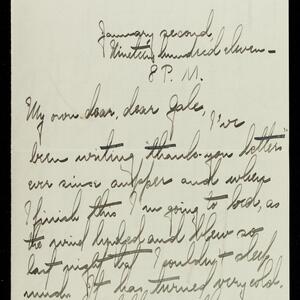 January second,
Nineteen hundred eleven -
8 P. M.
My own dear, dear Gale,
I've
been writing "thank-you letters"
ever since supper and when
I finish this I'm going to bed, as
the wind and blew so
last night that I couldn't sleep
much. It has turned very cold.